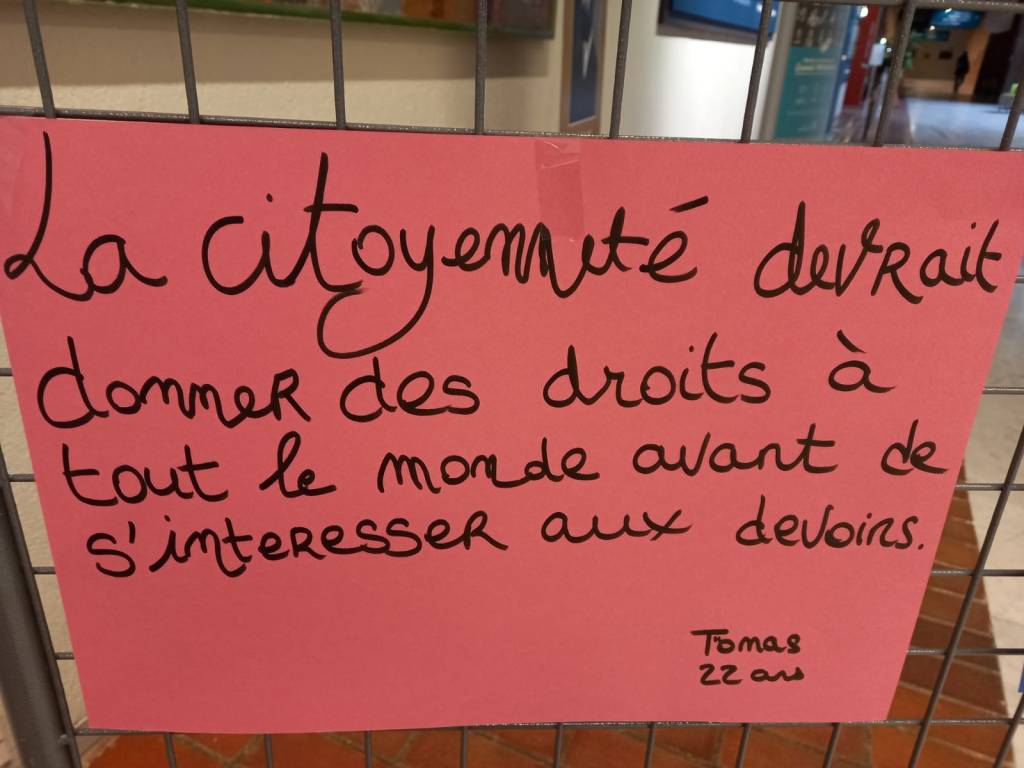 La citoyenneté devrait
donner des droits à
tout le monde avant de
s'interesser aux devoirs.
Tomas
22 ans